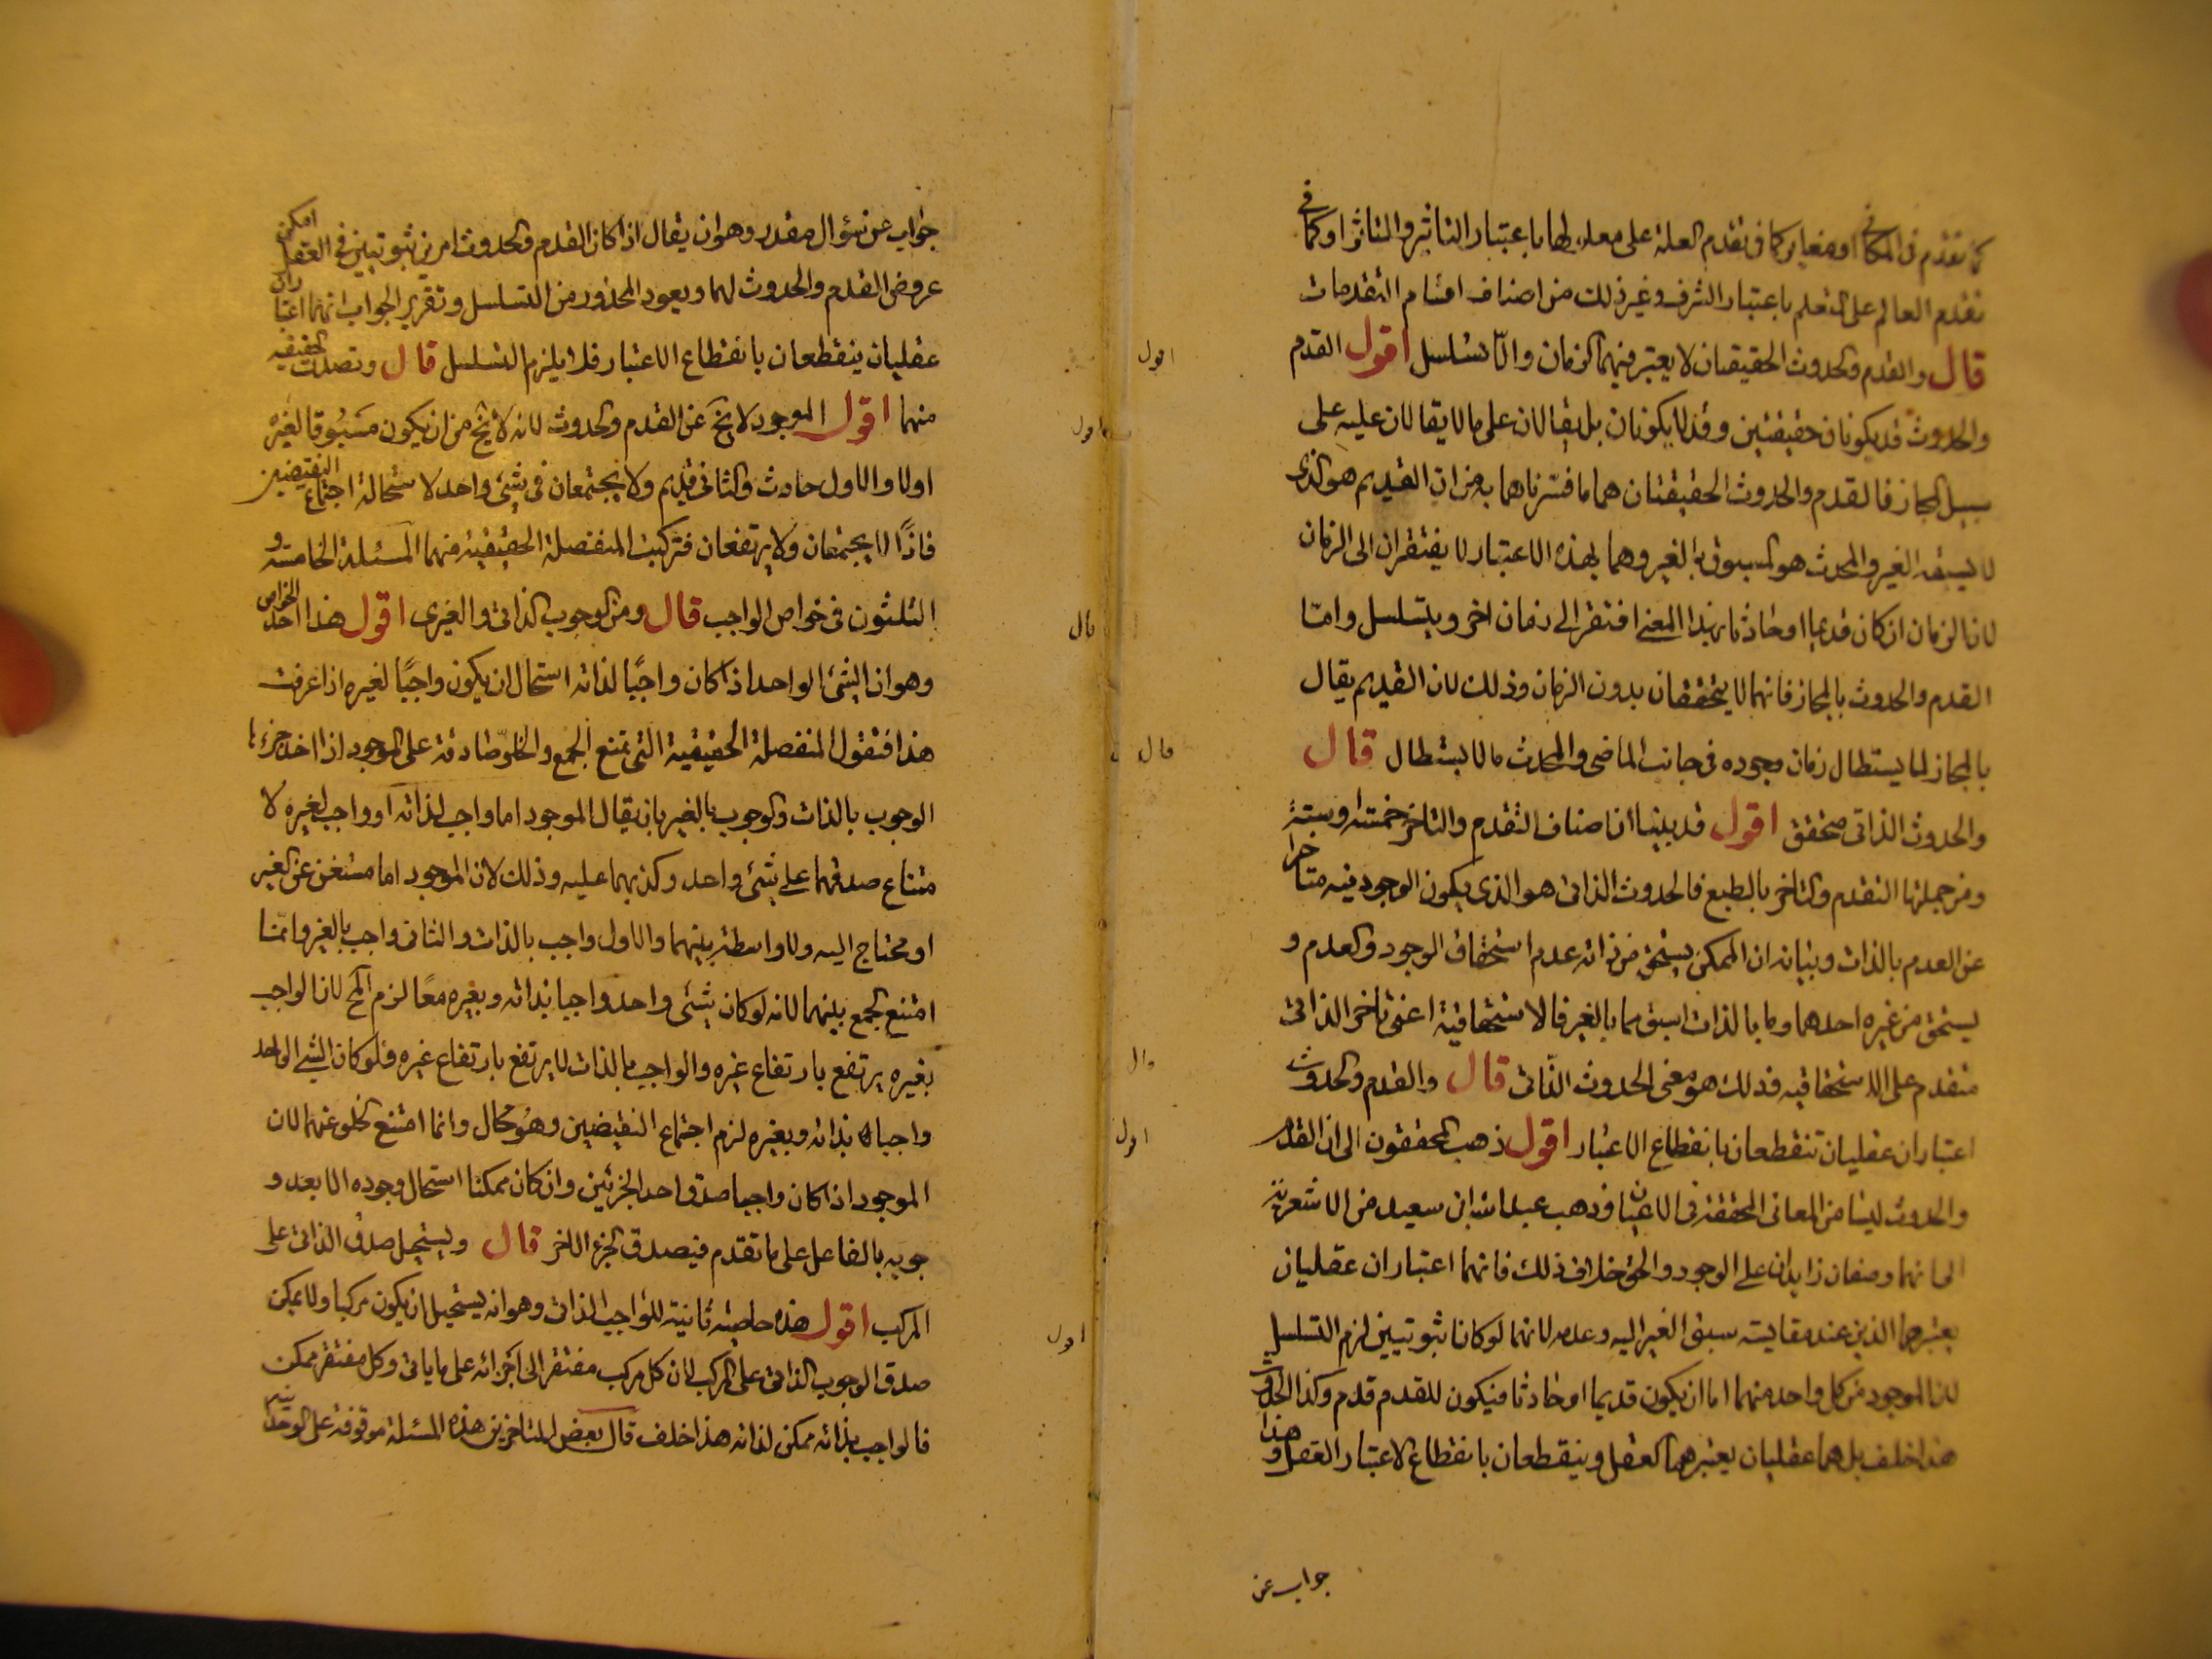 كما تقدم فى المكانى او مغاير كما فى تقدم العلة على معلولها باعتبار التاثير والتاثر او كما فى
تقدم العالم على المتعلم باعتبار الشرف وغير ذلك من اصناف اقسام التقدمات
قال والقدم والحدوث الحقيقيان لا يعتبر فيهما الزمان والا تسلسل اقول القدم
والحدوث قد يكونان حقيقيين وقد لا يكونان بل يقالان على ما لا يقالان عليه على
سبيل المجاز فالقدم والحدوث الحقيقيان هما ما فسرناهما به من ان القديم هو الذى
لا يسبقه الغير والمحدث هو المسبوق بالغير وهما بهذه الاعتبار لا يفتقران الى الزمان
لان الزمان ان كان قديما او حادثا بهذا المعنى افتقر الى زمان اخر ويتسلسل واما
القدم والحدوث بالمجاز فانهما لا يتحققان بدون الزمان وذلك لان القديم يقال
بالمجاز لما يستطال زمان وجوده فى جانب الماضى والمحدث ما لا يستطال قال
والحدوث الذاتى متحقق اقول قد بينا ان اصناف التقدم والتاخر خمسة او ستة
ومن جملتها التقدم والتاخر بالطبع فالحدوث الذاتى هو الذى يكون الوجود فيه متاخرا
عن العدم بالذات وبيانه ان الممكن يستحق من ذاته عدم استحقاق الوجود والعدم و
يستحق من غيره احدهما وما بالذات اسبق مما بالغير فالاستحقاقية اعنى تاخر الذاتى
متقدم على اللا ستحقاقيه فذلك هو معنى الحدوث الذاتى قال والقدم والحدوث
اعتباران عقليان تنقطعان بانقطاع الاعتبار اقول ذهب المحققون الى ان القدم
والحدوث ليسا من المعانى المحققة فى الاعيان وذهب عبد الله ابن سعيد من الاشعرية
الى انهما وصفان زايدان على الوجود والحق خلاف ذلك فانهما اعتباران عقليان
يعتبرهما الذهن عند مقايسة سبق الغير اليه وعدمه لانهما لو كانا ثبوتيين لزم التسلسل
لان الموجود من كل واحد منهما اما ان يكون قديما او حادثا فيكون للقدم قدم وكذا الحدوث
هذا خلف بل هما عقليان يعتبرهما العقل وينقطعان بانقطاع الاعتبار العقل و هذا
جواب عن
جواب عن سؤال مقدر وهو ان يقال اذا كان القدم والحدوث امرين ثبوتيين فى العقل امكن
عروض القدم والحدوث لهما ويعود المحذور من التسلسل وتقرير الجواب انهما اعتباران
عقليان ينقطعان بانقطاع الاعتبار فلا يلزم التسلسل قال وتصدق الحقيقيه
منهما اقول الموجود لا يخ عن القدم والحدوث لانه لا يخ من ان يكون مسبوقا لغيره
اولا والاول حادث والثانى قديم ولا يجتمعان فى شئ واحد لاستحالة اجتماع النقيضين
فاذًا لا يجتمعان ولا يرتفعان فتركبت المنفصلة الحقيقية منهما المسئلة الخامسة و
الثلثون فى خواص الواجب قال ومن الوجوب الذاتى والغيرى اقول هذا احد الخواص
وهو ان الشئ الواحد اذا كان واجبًا لذاته استحال ان يكون واجبًا لغيره اذا عرفت
هذا فنقول المنفصلة الحقيقية التى تمنع الجمع والخلو صادقة على الموجود اذا اخذ جزءا
الوجوب بالذات والوجوب بالغير بان يقال الموجود اما واجب لذاته او واجب لغيره لا
متناع صدقهما على شئ واحد وكذبهما عليه وذلك لان الموجود اما مستغن عن الغير
او محتاج اليه ولا واسطة بينهما والاول واجب بالذات والثانى واجب بالغير وانما
امتنع الجمع بينهما لانه لو كان شئ واحد واجبا بذاته وبغيره معًا لزم المح لان الواجب
بغيره يرتفع بارتفاع غيره والواجب بالذات لا يرتفع بارتفاع غيره فلو كان الشئ الواحد
واجبا بذاته وبغيره لزم اجتماع النقيضين وهو محال وانما امتنع الخلو عنهما لان
الموجود اذا كان واجبا صدق احد الجزئين وان كان ممكنا استحال وجوده الا بعد و
جوبه بالفاعل على ما تقدم فيصدق الجزء الاخر قال ويستحيل صدق الذاتى على
المركب اقول هذه خاصية ثانية للواجب الذات وهو انه يستحيل ان يكون مركبا ولا يمكن
صدق الوجوب الذاتى على المركب لان كل مركب مفتقر الى اجزائه على ما ياتى وكل مفتقر ممكن
فالواجب بذاته ممكن لذاته هذا خلف قال بعض المتاخرين هذه المسئلة موقوفة على الوحدانية
اقول
اقول
قال
قال
قال
اقول
اقول